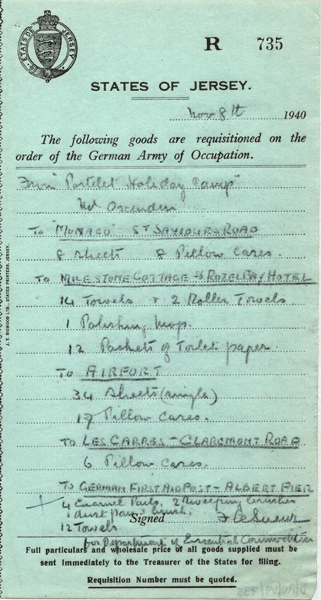 STATES OF JERSEY
R 735
STATES OF JERSEY.
Nov 8th 1940
The following goods are requisitioned on the
order of the German Army of Occupation.
From "Portelet Holiday Camp"
To "MONACO" ST SAVIOURS ROAD
8 Sheets 8 Pillow Cases.
To MILESTONE COTTAGE & ROZEL BAY HOTEL
14 Towels & 2 Roller Towels
1 Polishing mop.
12 Packets of Toilet paper.
To AIRPORT
34 Sheets (single)
17 Pillow Cases.
To LES CARRES - CLAREMONT ROAD
6 Pillow Cases.
To GERMAN FIRST AID POST - ALBERT PIER
4 Enamel Pails, 2 Sweeping brushes
1 dust pan & brush.
12 Towels
Signed
for Department of Essential Commodities
Full particulars and wholesale price of all goods supplied must be
sent immediately to the Treasurer of the States for filing.
Requisition Number must be quoted.